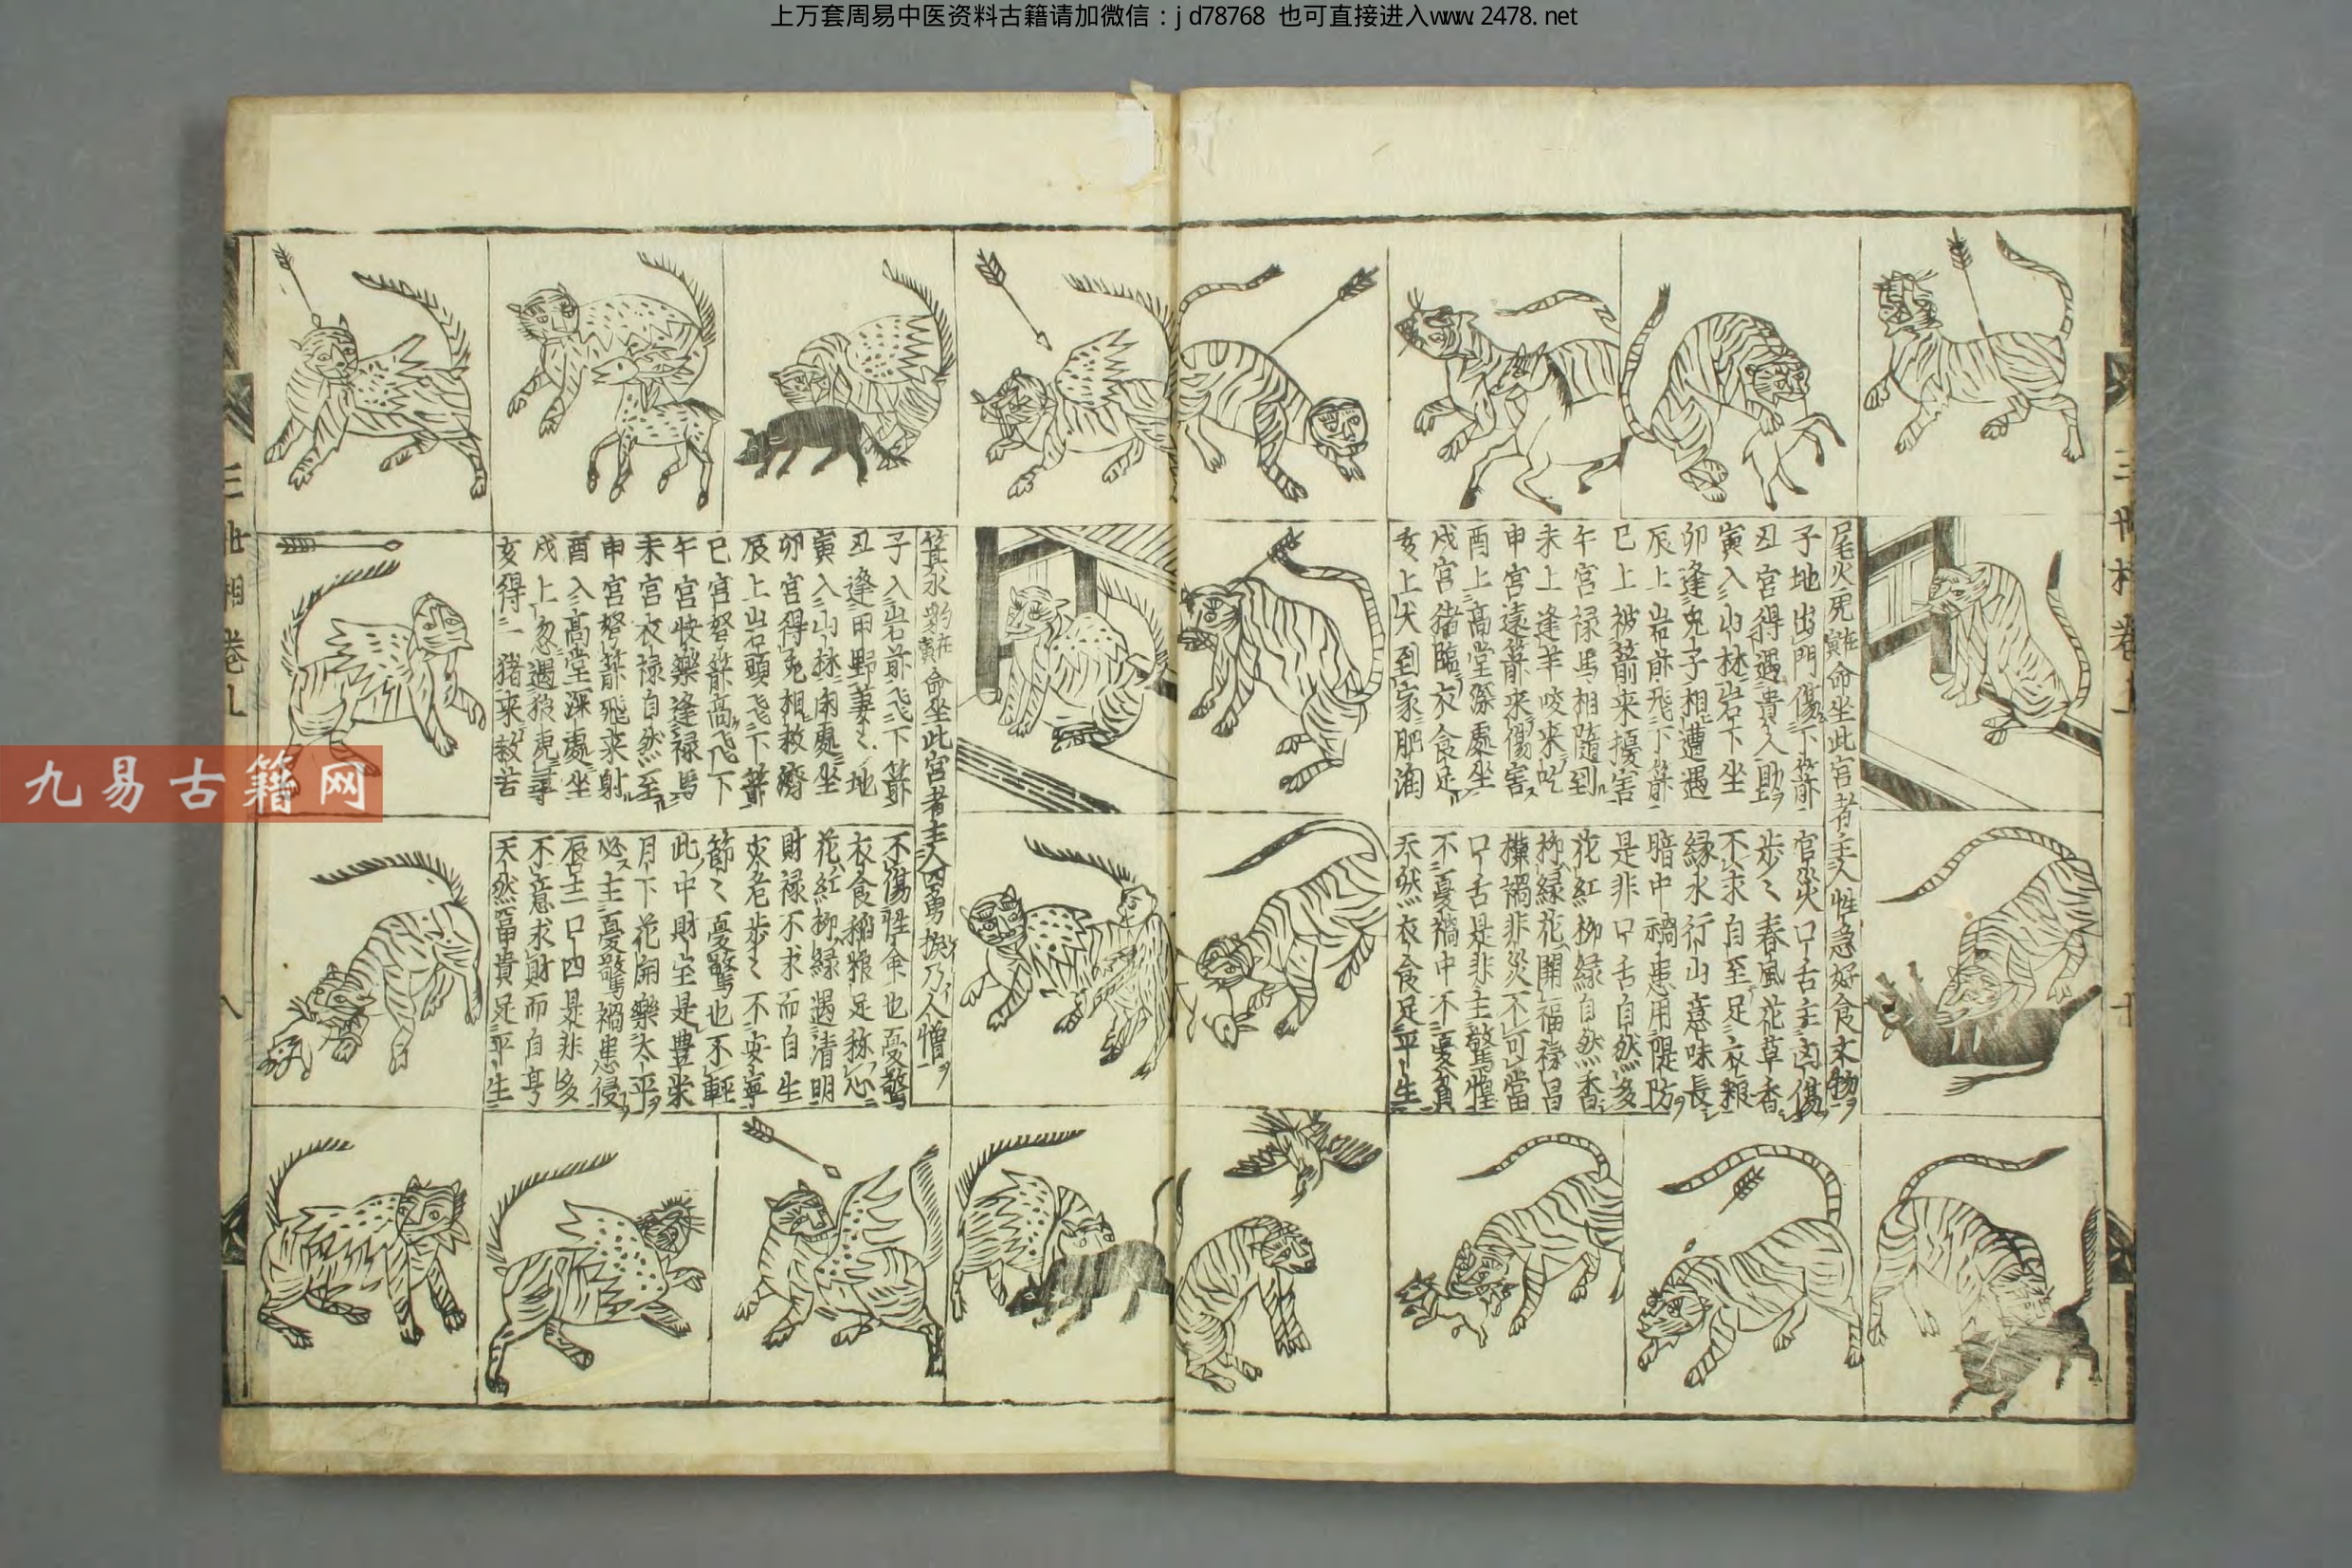 上万套周易中医资料古籍请加微信：jd78768 也可直接进入www.2478.net
尾火虎在寅命坐此宫者主人性急好食文物ヲ
子地出門傷下箭
丑宮得遇貴人助ヲ
寅入山林岩下坐
卯逢兎子相遭遇
辰上岩前飛下箭
巳上被箭来擾害
午宮禄馬相隨到
未上逢羊咬来吃
申宮遠箭来傷害
酉上高堂深處坐
戌宮猪臨衣食足
亥上犬到家肥潤
官灾口舌主凶傷
歩々春風花草香
不求自至足衣粮
緑水行山意味長
暗中禍患用隄防
是非口舌自然多
花紅柳緑自然香
柳緑花開福禄昌
横禍非災不可當
口舌是非主驚惶
不憂禍中不憂貧
天然衣食足平生
箕水豹在寅命坐此宮者主人勇猴乃人憎
子入岩前飛下箭
丑逢田野萋々地
寅入山林闲處坐
卯宮得兎相救濟
辰上岩頭飛下箭
巳宮弩箭高飛下
午宮快樂逢禄馬
未宮衣禄自然至
申宮弩箭飛来射
酉入高堂深處坐
戌上忽遇狼虎
亥得一猪来救苦
不傷性命也憂驚
衣食稲粮足称心
花紅柳緑遇清明
財禄不求而自生
災危歩々不安寧
節々憂驚也不輕
此中財宝是豊栄
月下花開樂太平
必主憂驚禍患侵
辰主一口四是非多
不意求財而自亨
天然富貴足平生
三世相卷九
八
九易古籍网